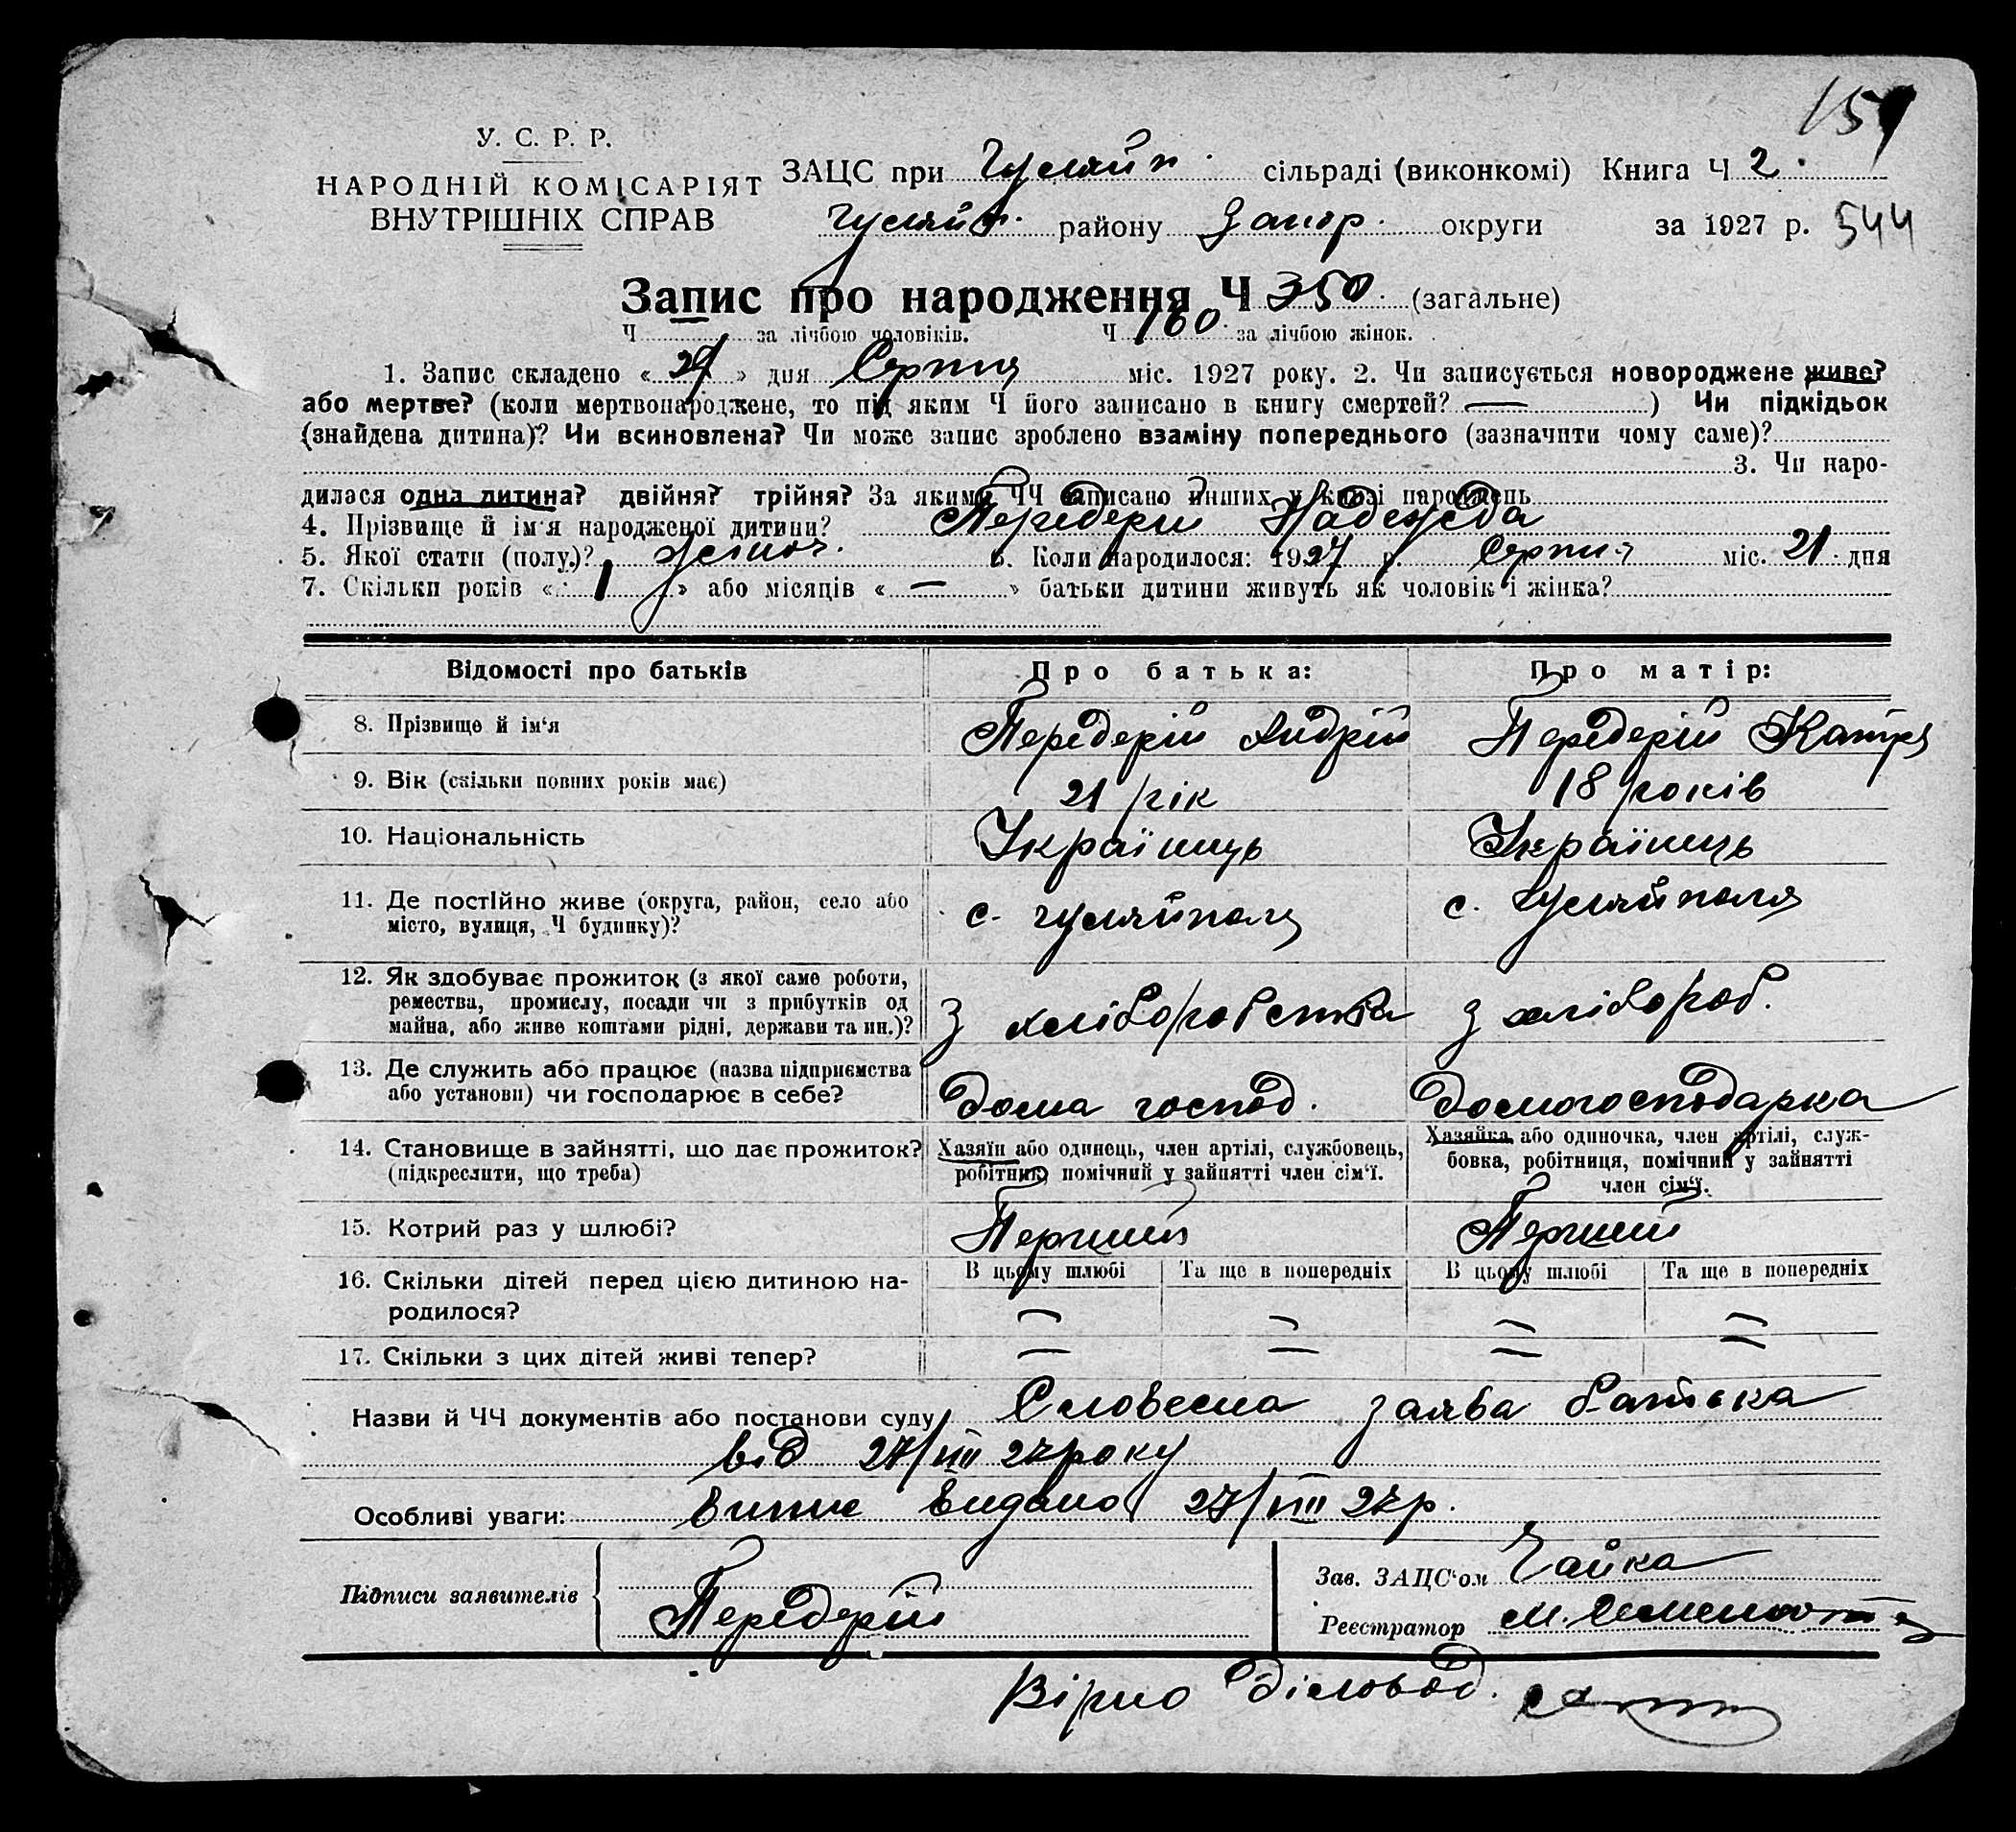 159
У. С. Р. Р.
НАРОДНІЙ КОМІСАРІЯТ
ВНУТРІШНІХ СПРАВ
ЗАЦС при Гуляйп. сільраді (виконкомі) Книга Ч 2.
Гуляйп. району Запор. округи за 1927 р. 544
Запис про народження Ч 350. (загальне)
Ч за лічбою чоловіків. Ч 160. за лічбою жінок.
1. Запис складено « 27 » дня Серпня міс. 1927 року. 2. Чи записується новороджене живе?
або мертве? (коли мертвонароджене, то під яким Ч його записано в книгу смертей? —) Чи підкідьок
(знайдена дитина)? Чи всиновлена? Чи може запис зроблено взаміну попереднього (зазначити чому саме)?
3. Чи наро-
дилася одна дитина? двійня? трійня? За якими ЧЧ записано инших у книзі народжень
4. Прізвище й ім'я народженої дитини? Передерій Надежда
5. Якої стати (полу)? жіноч. 6. Коли народилося: 1927 р. Серпня міс. 21. дня
7. Скільки років « 1 » або місяців « — » батьки дитини живуть як чоловік і жінка?
Відомості про батьків Про батька: Про матір:
8. Прізвище й ім'я Передерій Андрій Передерій Катря
9. Вік (скільки повних років має) 21 рік 18 років
10. Національність Українець Українець
11. Де постійно живе (округа, район, село або
місто, вулиця, Ч будинку)? с. Гуляйполя с. Гуляйполя
12. Як здобуває прожиток (з якої саме роботи,
ремества, промислу, посади чи з прибутків од
майна, або живе коштами рідні, держави та ин.)? З хліборобства З хлібороб.
13. Де служить або працює (назва підприємства
або установи) чи господарює в себе? Дома господ. Домогосподарка
14. Становище в зайнятті, що дає прожиток?
(підкреслити, що треба)
Хазяїн або одинець, член артілі, службовець,
робітник, помічний у зайнятті член сім'ї.
Хазяйка або одиночка, член артілі, служ-
бовка, робітниця, помічний у зайнятті
член сім'ї.
15. Котрий раз у шлюбі? Перший Перший
16. Скільки дітей перед цією дитиною на-
родилося?
В цьому шлюбі Та ще в попередніх В цьому шлюбі Та ще в попередніх
— — — —
17. Скільки з цих дітей живі тепер? — — — —
Назви й ЧЧ документів або постанови суду Словесна заява батька
від 27/VIII 27 року
Особливі уваги: Випис видано 27/VIII 27 р.
Підписи заявителів Передерій
Зав. ЗАЦС'ом Чайка
Реєстратор М.
Вірно Діловод.